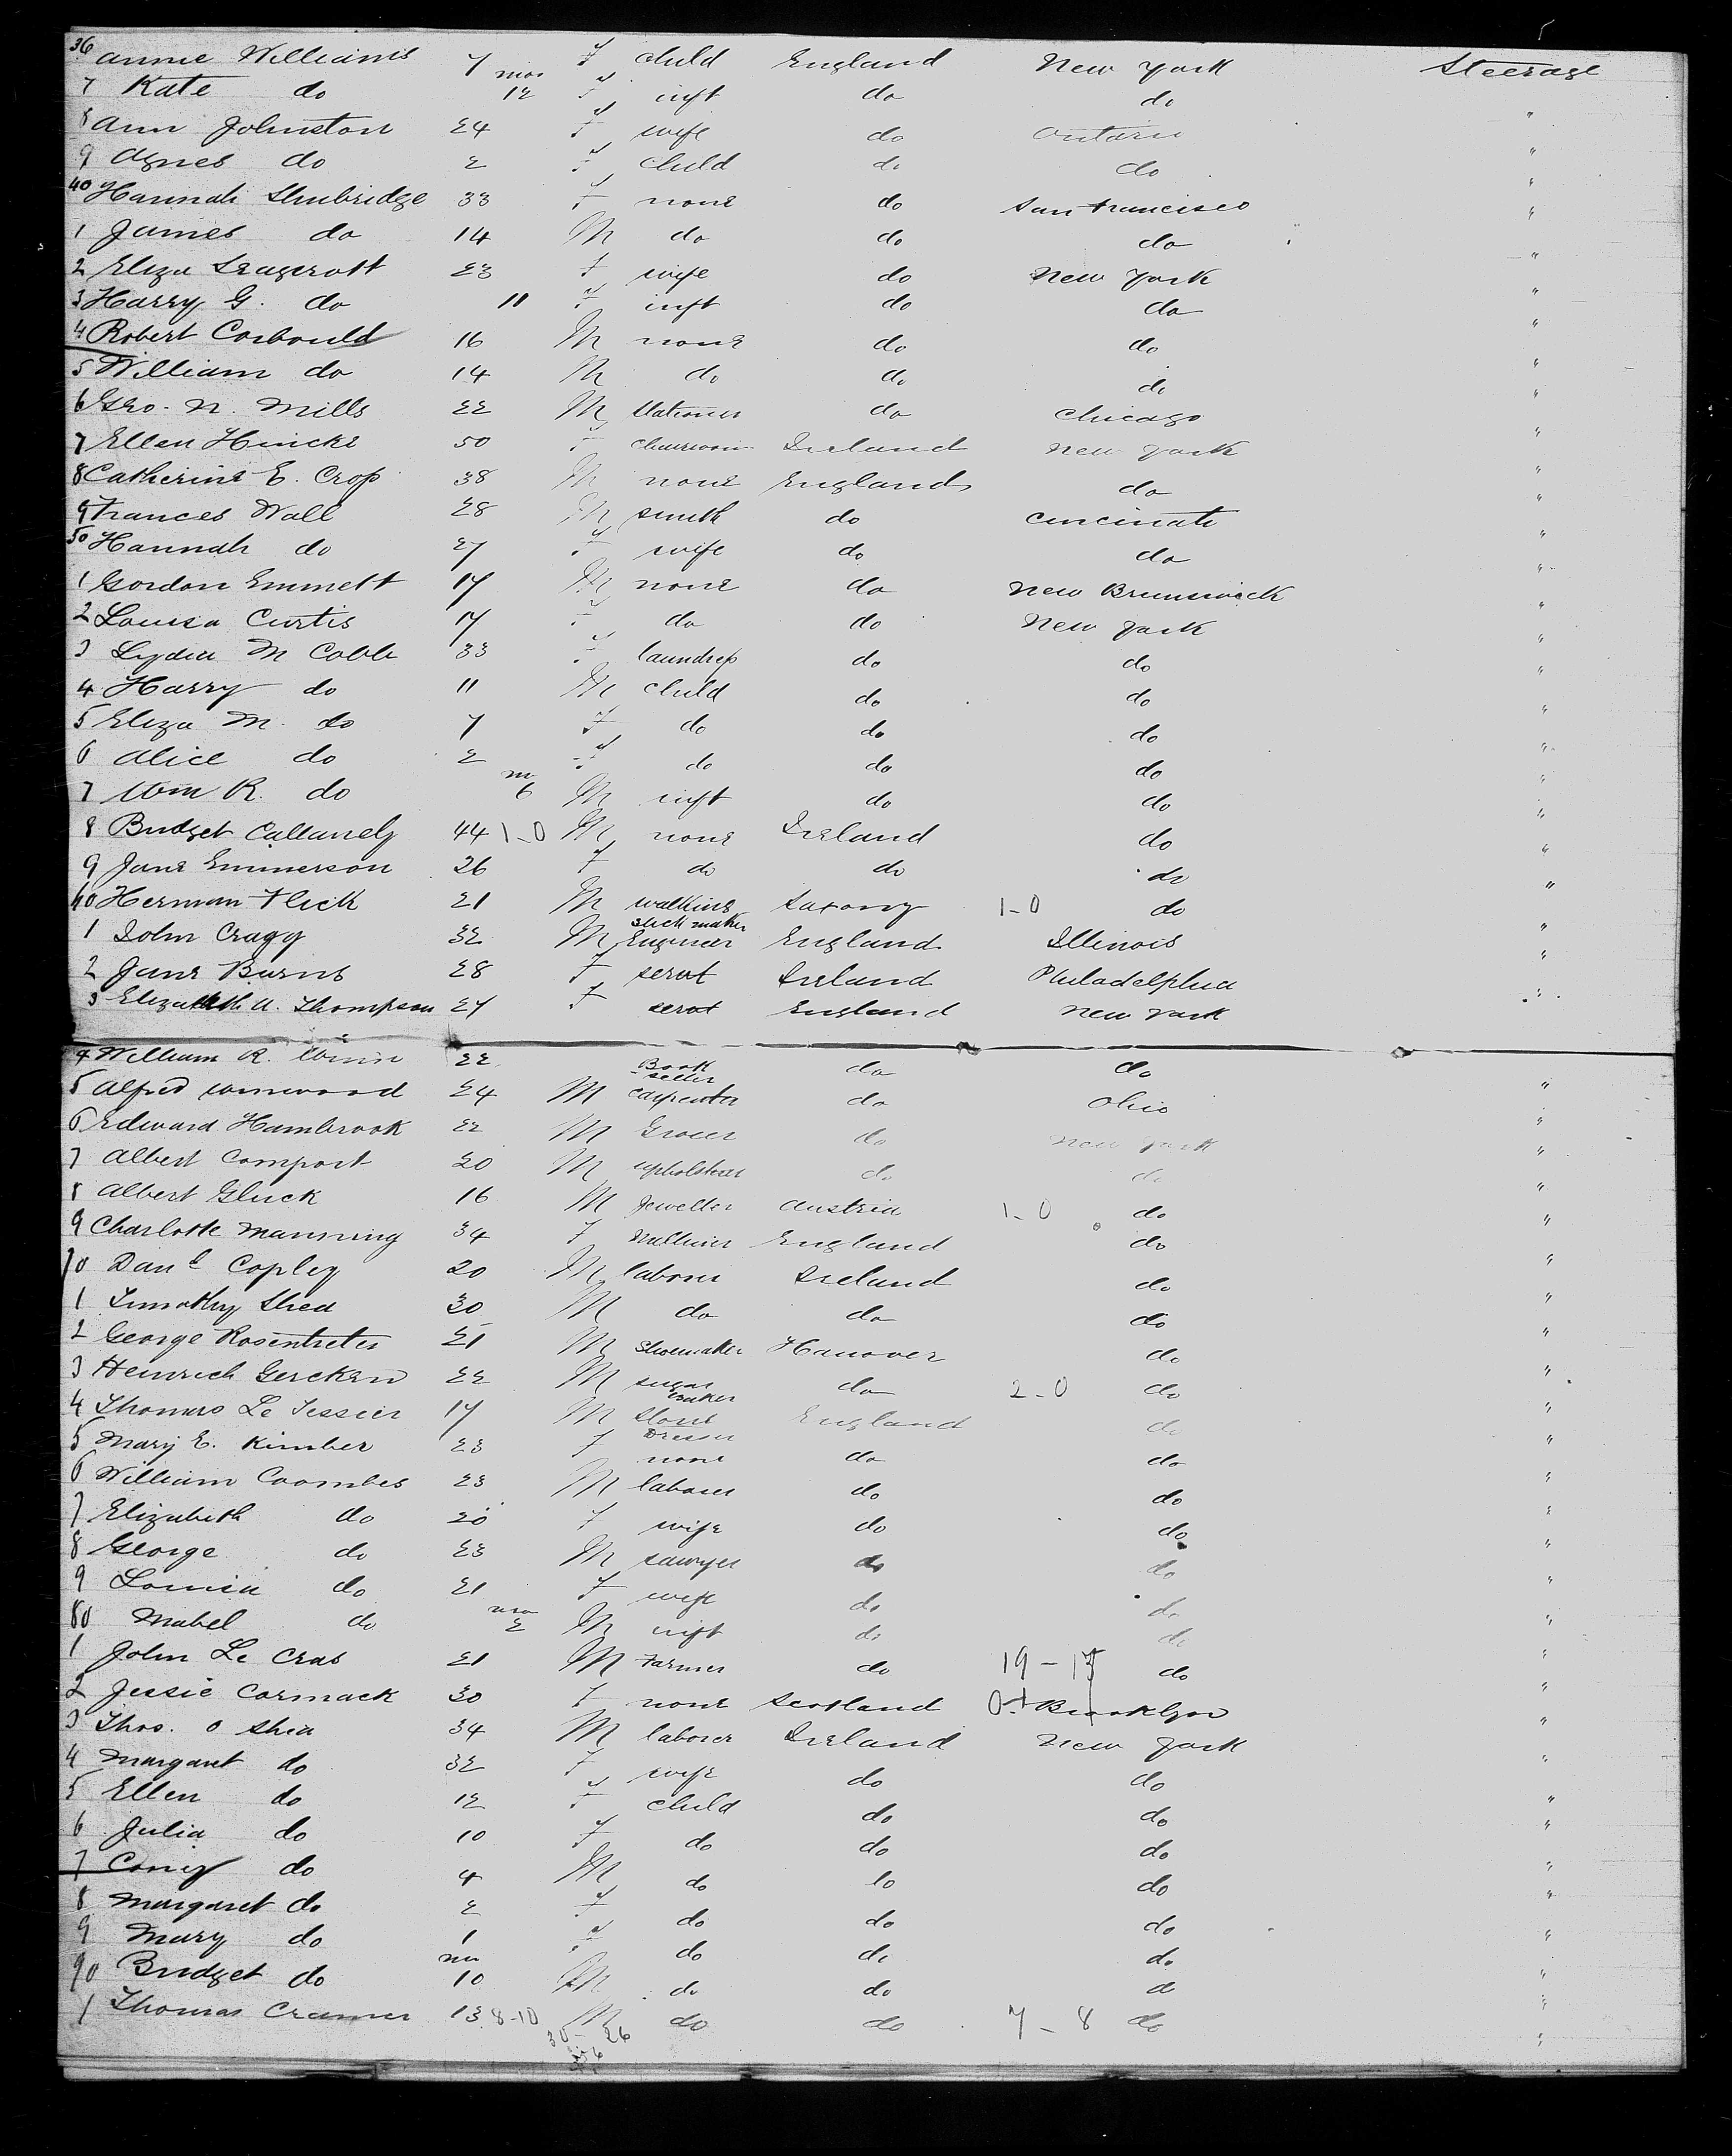 36 Annie Williams 7 F child England New York Steerage
7 Kate do mos 12 F inft do do "
8 Ann Johnston 24 F wife do Ontario "
9 Agnes do 2 F child do do "
40 Hannah Shubridge 33 F none do San Francisco "
1 James do 14 M do do do "
2 Eliza Seagcroft 23 F wife do New York "
3 Harry G. do 11 F inft do do "
4 Robert Corbould 16 M none do do "
5 William do 14 M do do do "
6 Geo. N. Mills 22 M Stationer do Chicago "
7 Ellen Hincks 50 F Ireland New York "
8 Catherine E. Crop 38 M none England do "
9 Frances Wall 28 M smith do Cincinati "
50 Hannah do 27 F wife do do "
1 Gordon Emmett 17 M none do New Brunswick "
2 Louisa Curtis 17 F do do New York "
3 Lydia M Cobb 33 F laundress do do "
4 Harry do 11 M child do do "
5 Eliza M. do 7 F do do do "
6 Alice do 2 F do do do "
7 Wm R. do mo 6 M inft do do "
8 Bridget Callanely 44 1-0 M none Ireland do "
9 Jane Emmerson 26 F do do do "
60 Herman Fleck 21 M walking stick maker Saxony 1-0 do "
1 John Cragg 32 M Engineer England Illinois "
2 Jane Burns 28 F servt Ireland Philadelphia "
3 Elizabeth A. Thompson 27 F servt England New York "
4 William R. Winn 22 Book seller do do "
5 Alfred Winwood 24 M Carpenter do Ohio "
6 Edward Hambrook 22 M Grocer do New York "
7 Albert Comport 20 M upholsterer do do "
8 Albert Gluck 16 M Jeweller Austria 1-0 do "
9 Charlotte Manning 34 F Milliner England do "
70 Danl Copley 20 M laborer Ireland do "
1 Timothy Shea 30 M do do do "
2 George Rosentreter 21 M Shoemaker Hanover do "
3 Heinrich Gercken 22 M sugar baker do 2-0 do "
4 Thomas Le Tessier 17 M Stone Dresser England do "
5 Mary E. Kimber 23 F none do do "
6 William Coombes 23 M laborer do do "
7 Elizabeth do 20 F wife do do "
8 George do 23 M sawyer do do "
9 Louisa do 21 F wife do do "
80 Mabel do mo 2 M inft do do "
1 John Le Cras 21 M Farmer do 19-13 do "
2 Jessie Cormack 30 F none Scotland Brooklyn "
3 Thos. O Shea 34 M laborer Ireland New York "
4 Margaret do 32 F wife do do "
5 Ellen do 12 F child do do "
6 Julia do 10 F do do do "
7 Corny do 4 M do do do "
8 Margaret do 2 F do do do "
9 Mary do 1 F do do do "
90 Bridget do mo 10 M do do do "
1 Thomas Cramer 13 8-10 M do do 7-8 do "
30-26